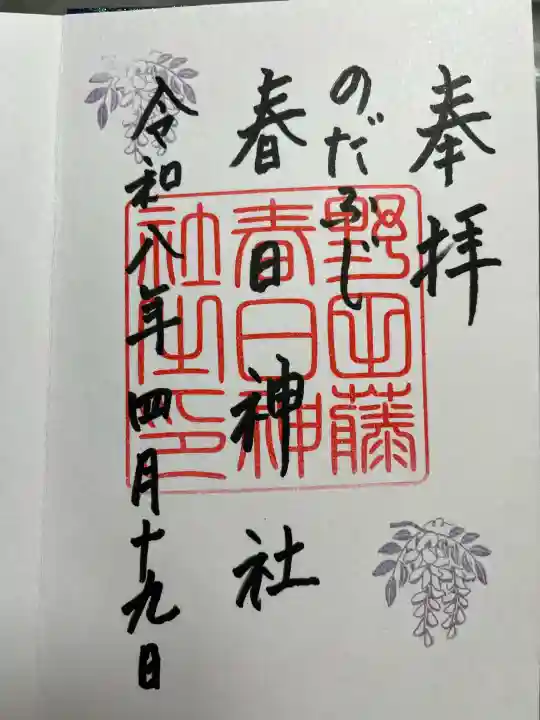 奉拝
のだふじ
春日神社
令和八年四月十九日
野田藤
春日神
社之印